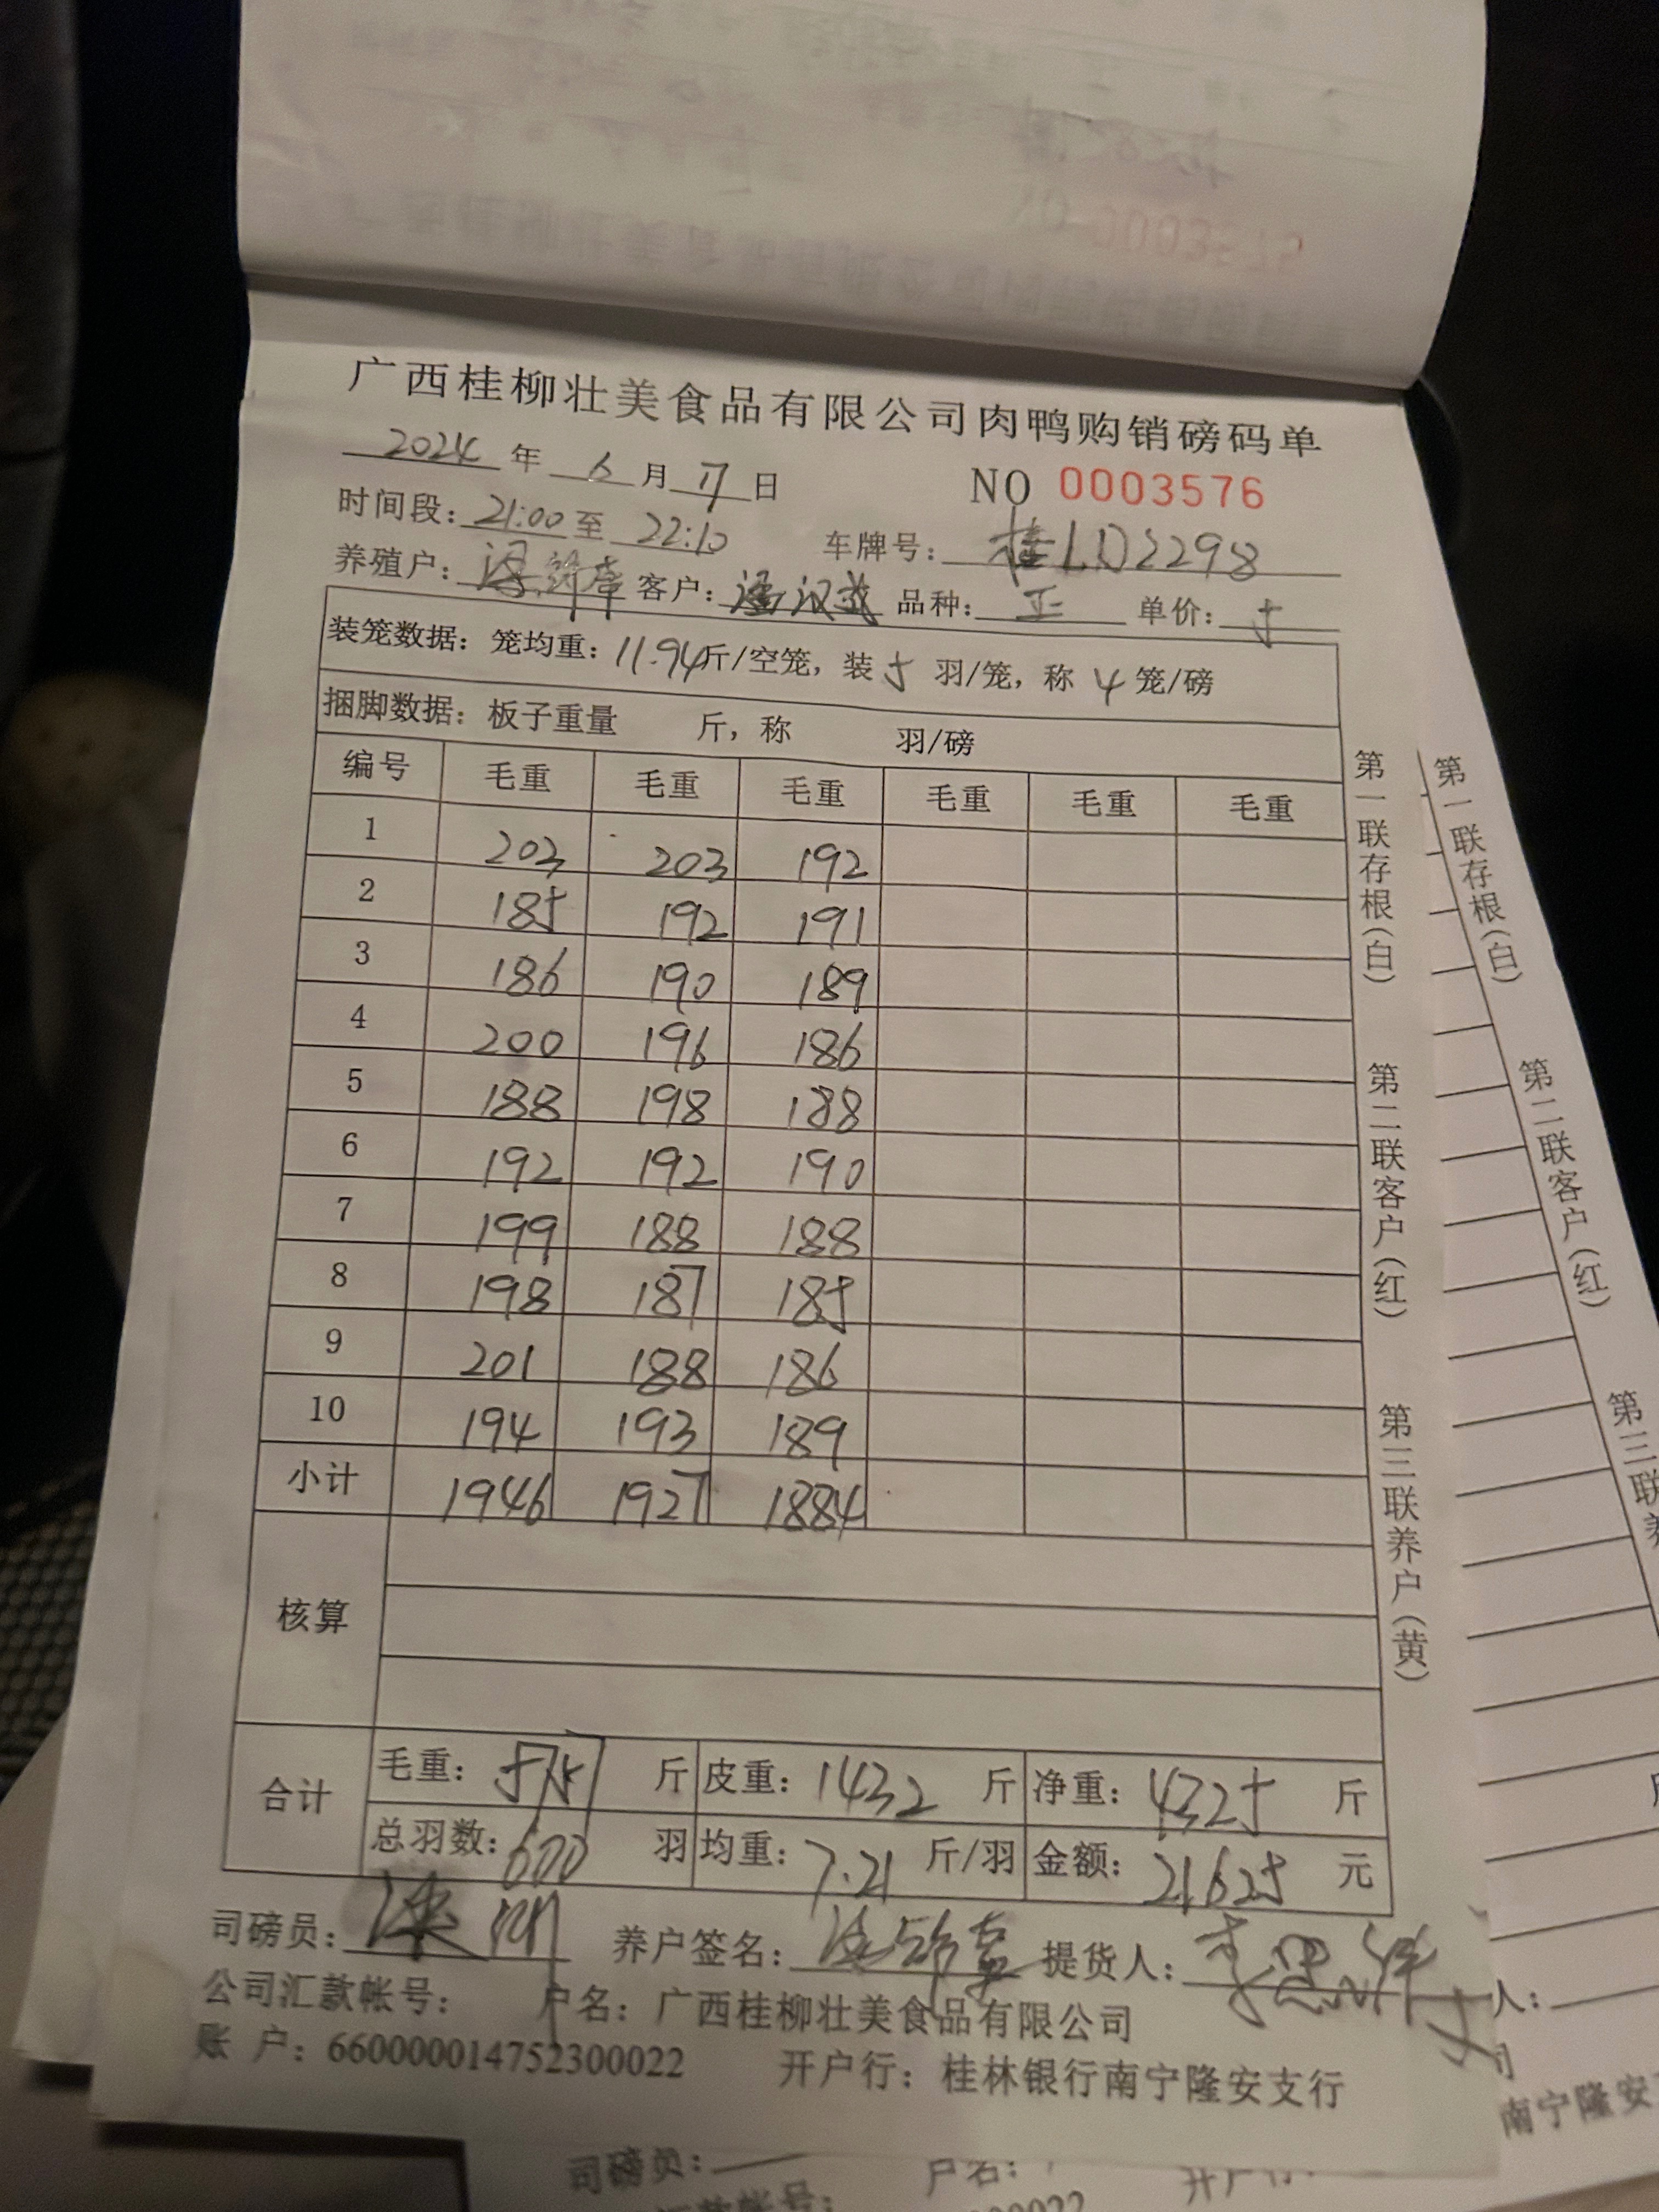 广西桂柳壮美食品有限公司肉鸭购销磅码单
2024 年 6 月 17 日 NO 0003576
时间段: 21:00 至 22:10 车牌号: 桂LD2298
养殖户: 客户: 潘汉武 品种: 正 单价: 5
装笼数据: 笼均重: 11.94 斤/空笼, 装 5 羽/笼, 称 4 笼/磅
捆脚数据: 板子重量 斤, 称 羽/磅
编号 毛重 毛重 毛重 毛重 毛重 毛重
1 203 203 192
2 185 192 191
3 186 190 189
4 200 196 186
5 188 198 188
6 192 192 190
7 199 188 188
8 198 187 185
9 201 188 186
10 194 193 189
小计 1946 1927 1884
核算
合计
毛重: 5757 斤 皮重: 1432 斤 净重: 4325 斤
总羽数: 600 羽 均重: 7.21 斤/羽 金额: 21625 元
司磅员: 养户签名: 提货人:
公司汇款帐号: 户名: 广西桂柳壮美食品有限公司
账 户: 660000014752300022 开户行: 桂林银行南宁隆安支行
第一联存根(白) 第二联客户(红) 第三联养户(黄)
第一联存根(白) 第二联客户(红) 第三联养
人:
司
南宁隆安
司磅员: 户名: 开户行:
汇款帐号:
00022